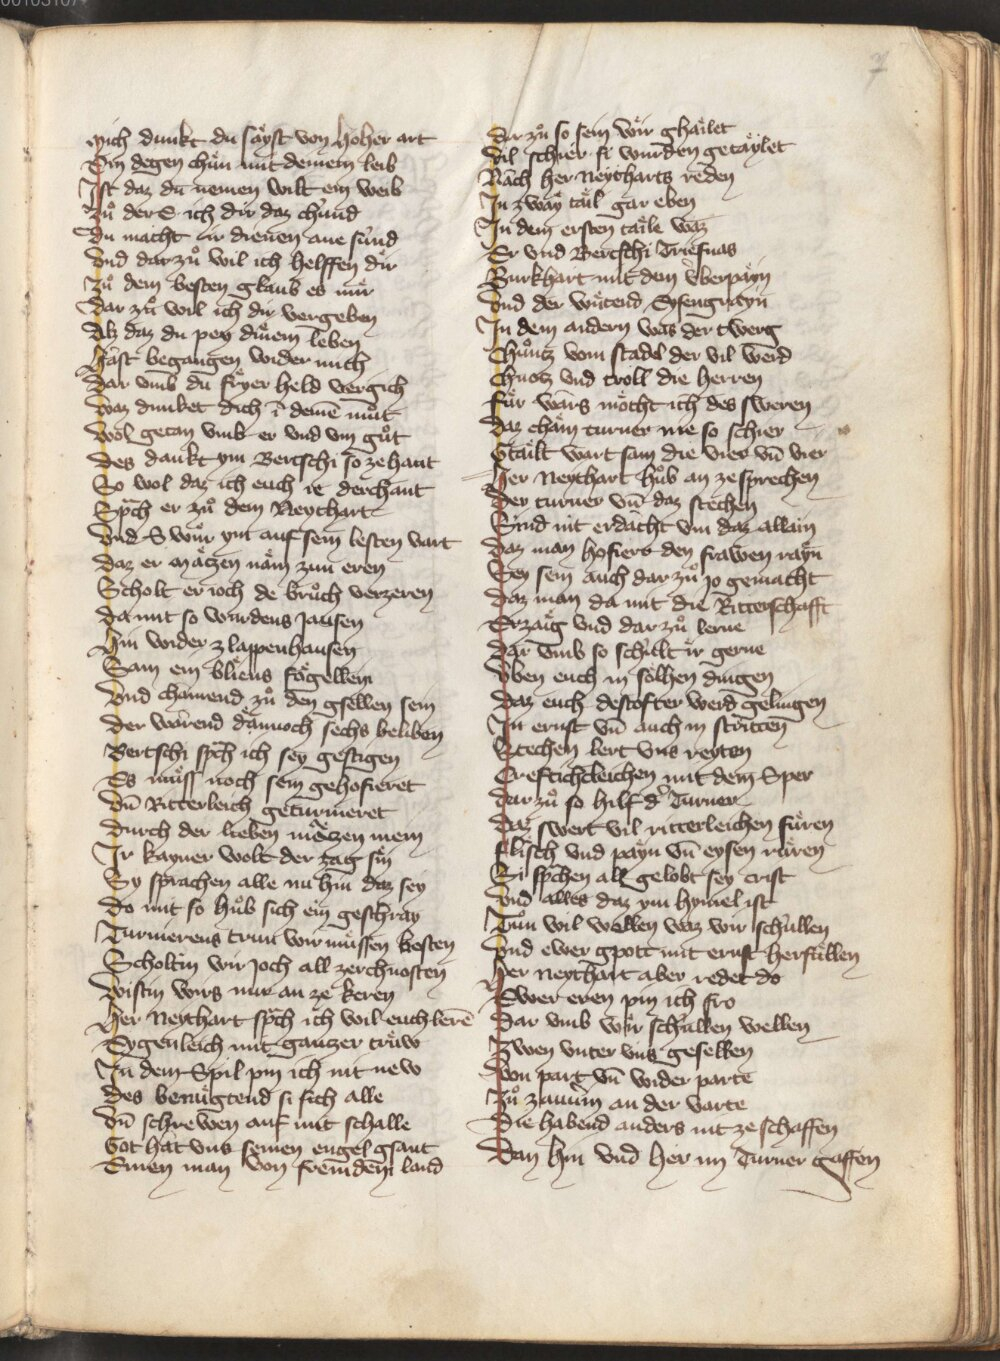 00103107
7
Mich dunkt du säyst von hoher art
Ein degen chün mit deinem leib
Ist daz du nemen wilt ein weib
Zuͦ der E ich dir daz chünd
Du macht ir dienen ane sünd
Und darzuͦ wil ich helffen dir
Zuͦ dem besten glaub es mir
Dar zuͦ wil ich dir vergeben
Alz daz du pey dinem leben
Häst begangen wider mich
Dar umb du fryer held vergich
Waz dunket dich ī deinē muͦt
Wol getan umb er und um guͦt
Des dankt ym Bertschi so ze hant
So wol daz ich euch ie derchant
Sp̄ch er zuͦ dem Neythart
Und S wuͤr ym auf sein lesten vart
Daz er mätzen näm zun eren
Scholt er ioch de bruͦch verzeren
Da mit so wurdens jausen
Hin wider z lappenhausen
Sam ein bliens fögellein
Und chamend zuͦ den gsellen sein
Der wärend dannoch sechs beliben
Bertschi sp̄ch ich sey gestigen
Es müss noch sein gehofieret
Un̄ Ritterleich geturnieret
Durch der lieben mätzen mein
Ir kayner wolt der zag sin
Sy sprachen alle nu hin daz sey
Do mit so huͦb sich ein geschray
Turnierens trun wir müssen kosten
Scholtin wir joch all zerchnosten
Wistin wirs nur an ze keren
Her Neythart sp̄ch ich wil euch lerē
Sygenleich mit gantzer trüw
In dem Spil pin ich nit new
Des benügtend si sich alle
Un̄ schrewen auf mit schalle
Got hat uns seinen engel gsant
Einen man von fremdem land
Dar zuͦ so sein wir ghailet
Vil schier si wurden getäylet
Näch her Neytharts reden
In zway tail gar eben
In dem ersten taile waz
Er und Bertschi Triefnas
Burkhart mit dem Überpäyn
Und der wütend Eysengrayn
In dem andern was der twerg
Chuͦntz vom stadel der vil werd
Chnotz und troll die herren
Für wars möcht ich des sweren
Daz chäin turner nie so schier
Gtailt wart sam die vier un̄ vier
Her Neythart huͦb an ze sprechen
Der turner un̄ daz stechen
Sind nit erdacht um daz allain
Daz man hofier den frawen rayn
Sey sein auch dar zuͦ jo gemacht
Daz man da mit die Ritterschafft
Erzaig und dar zuͦ lerne
Dar umb so schült ir gerne
Üben euch in sölhen dingen
Daz euch destofter werd gelingen
In ernst un̄ auch in stritten
Stechen lert uns reyten
Creftichleichen mit dem Sper
Dar zuͦ so hilf d' Turner
Daz swert vil ritterleichen füren
Flisch und payn un̄ eysen rüren
Si sp̄chen all gelobt sey crist
Und alles daz ym hymel ist
Tuͦn wil wellen waz wir schullen
Und ewer gpott mit ernst herfüllen
Her Neythart aber redet do
Ewer eren pin ich fro
Dar umb wir schullen wellen
Zwen unter uns gesellen
Von part un̄ wider parte
Zuͦ zaum an der varte
Die habend anders nit ze schaffen
Dan hin und her im Turner gaffen